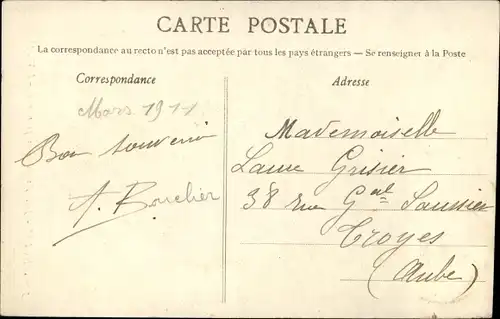 CARTE POSTALE
La correspondance au recto n'est pas acceptée par tous les pays étrangers — Se renseigner à la Poste
Correspondance
Mars 1911
Bon souvenir
A. Bouclier
Adresse
Mademoiselle
Laure Grisier
38 rue Gal Saussier
Troyes
(Aube)